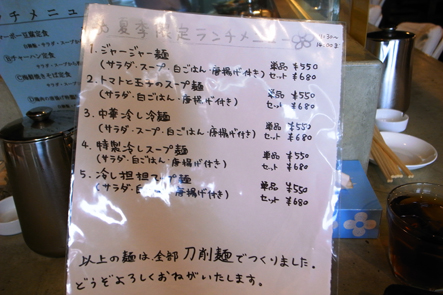 夏季限定ランチメニュー
1. ジャージャー麺 単品 ¥550
(サラダ・スープ・白ごはん・唐揚げ付き) セット ¥680
2. トマトと玉子のスープ麺 単品 ¥550
(サラダ・白ごはん・唐揚げ付き) セット ¥680
3. 中華冷し冷麺 単品 ¥550
(サラダ・スープ・白ごはん・唐揚げ付き) セット ¥680
4. 特製冷しスープ麺 単品 ¥550
(サラダ・白ごはん・唐揚げ付き) セット ¥680
5. 冷し担担スープ麺 単品 ¥550
(サラダ・白ごはん・唐揚げ付き) セット ¥680
以上の麺は全部刀削麺でつくりました.
どうぞよろしくおねがいたします。